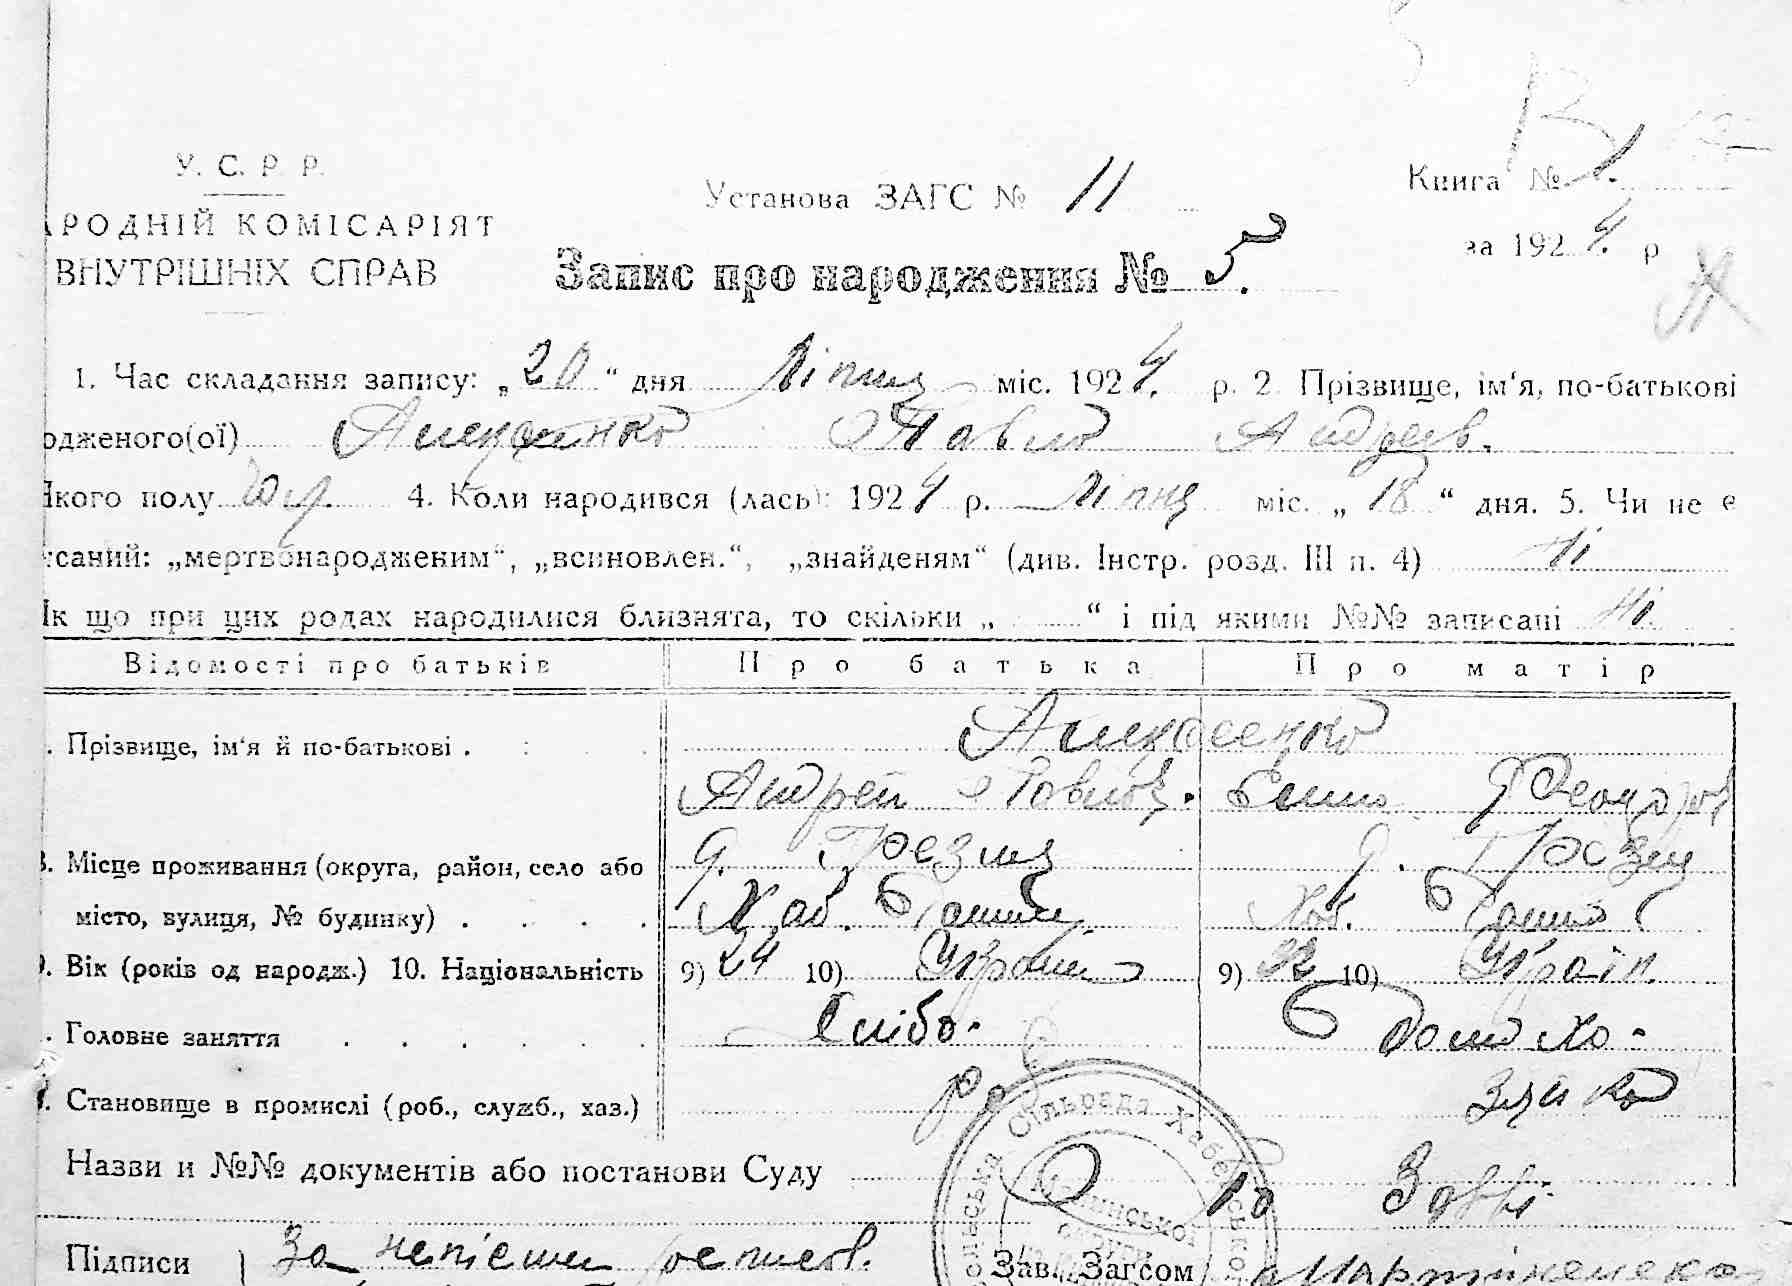 У. С. Р. Р.
АРОДНІЙ КОМІСАРІЯТ
ВНУТРІШНІХ СПРАВ
Установа ЗАГС № 11
Книга № 1.
за 1924 р
Запис про народження № 5.
1. Час складання запису: „20“ дня Ліпця міс. 1924. р. 2 Прізвище, ім‘я, по-батькові
одженого(ої) Алексеенко Павло Андреев.
Якого полу 4. Коли народився (лась): 1924 р. Ліпця міс. „18“ дня. 5. Чи не є
исаний: „мертвонародженим“, „всиновлен.“, „знайденям“ (див. Інстр. розд. III п. 4) Ні
Як що при цих родах народилися близнята, то скільки „ “ і під якими №№ записані Ні.
Відомості про батьків Про батька Про матір
. Прізвище, ім‘я й по-батькові . Алексеенко
Андрей Павлов. Феодоров
8. Місце проживання (округа, район, село або Грезля Грезля
місто, вулиця, № будинку) . . . . Хаб. Хаб.
9. Вік (років од народж.) 10. Національність 9) 24 10) 9) 22 10) Украін.
. Головне заняття . . . . . . Хлібо- Домо Хо-
роб
. Становище в промислі (роб., служб., хаз.) зяйка
Назви и №№ документів або постанови Суду По Заяві.
Сільрада Хабенсько
Підписи За
Зав. Загсом